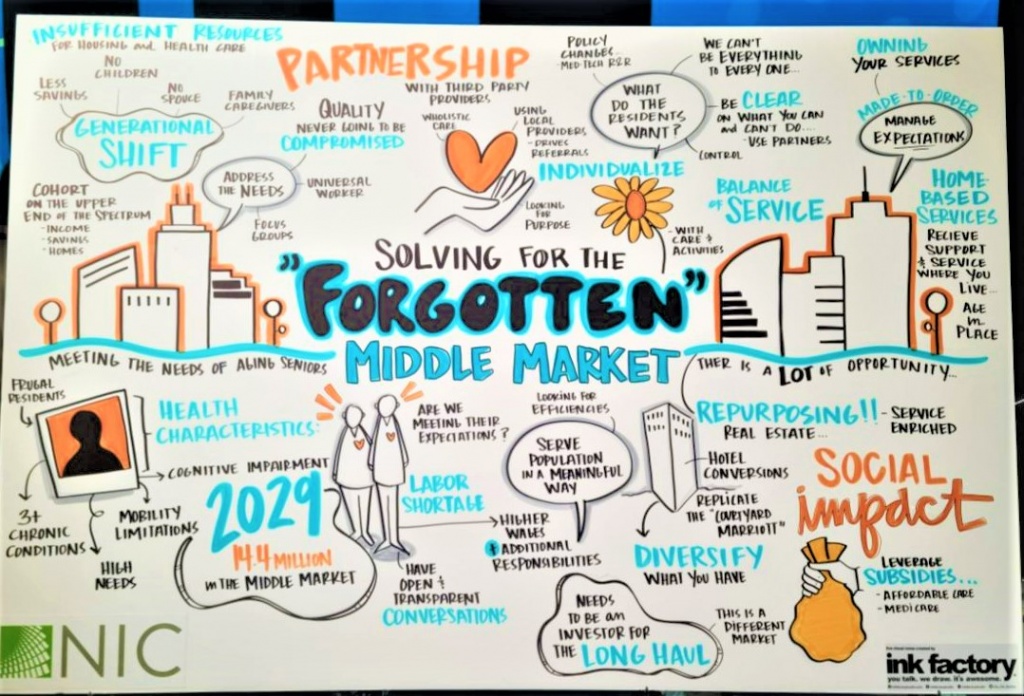 INSUFFICIENT RESOURCES
FOR HOUSING and HEALTH CARE
LESS
SAVINGS
NO
CHILDREN
NO
SPOUCE
FAMILY
CAREGIVERS
GENERATIONAL
SHIFT
COHORT
ON THE UPPER
END OF THE SPECTRUM
- INCOME
- SAVINGS
- HOMES
PARTNERSHIP
WITH THIRD PARTY
PROVIDERS
QUALITY
NEVER GOING TO BE
COMPROMISED
ADDRESS
THE NEEDS
UNIVERSAL
WORKER
FOCUS
GROUPS
WHOLISTIC
CARE
USING
LOCAL
PROVIDERS
- DRIVES
REFERRALS
LOOKING
FOR
PURPOSE
INDIVIDUALIZE
POLICY
CHANGES...
- MED-TECH R&R
WHAT
DO THE
RESIDENTS
WANT?
WE CAN'T
BE EVERYTHING
TO EVERY ONE...
BE CLEAR
ON WHAT YOU CAN
and CAN'T DO...
- USE PARTNERS
CONTROL
- WITH
CARE &
ACTIVITIES
BALANCE
OF SERVICE
OWNING
YOUR SERVICES
MADE-TO-ORDER
MANAGE
EXPECTATIONS
HOME-
BASED
SERVICES
RECIEVE
SUPPORT
& SERVICE
WHERE YOU
LIVE...
AGE
in
PLACE
SOLVING FOR THE
"FORGOTTEN"
MIDDLE MARKET
MEETING THE NEEDS OF AGING SENIORS
THER IS A LOT OF OPPORTUNITY...
FRUGAL
RESIDENTS
HEALTH
CHARACTERISTICS:
COGNITIVE IMPAIRMENT
MOBILITY
LIMITATIONS
HIGH
NEEDS
3+
CHRONIC
CONDITIONS
2029
14.4 MILLION
in THE MIDDLE MARKET
ARE WE
MEETING THEIR
EXPECTATIONS?
LABOR
SHORTAGE
HIGHER
WAGES
+ ADDITIONAL
RESPONSIBILITIES
HAVE
OPEN &
TRANSPARENT
CONVERSATIONS
LOOKING FOR
EFFICIENCIES
SERVE
POPULATION
IN A MEANINGFUL
WAY
REPURPOSING!!
REAL ESTATE...
- SERVICE
ENRICHED
HOTEL
CONVERSIONS
REPLICATE
THE "COURTYARD
MARRIOTT"
DIVERSIFY
WHAT YOU HAVE
NEEDS
TO BE an
INVESTOR FOR
THE LONG HAUL
THIS IS A
DIFFERENT
MARKET
SOCIAL
impact
LEVERAGE
SUBSIDIES...
- AFFORDABLE CARE
- MEDICARE
NIC
ink factory
you talk. we draw. it's awesome.